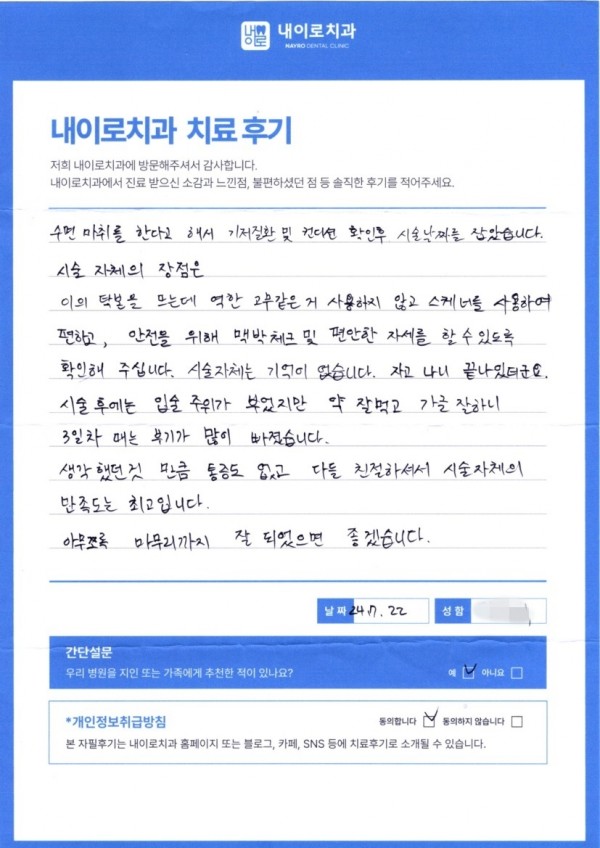 내이로치과
NAYRO DENTAL CLINIC
내이로치과 치료 후기
저희 내이로치과에 방문해주셔서 감사합니다.
내이로치과에서 진료 받으신 소감과 느낀점, 불편하셨던 점 등 솔직한 후기를 적어주세요.
수면 마취를 한다고 해서 기저질환 및 컨디션 확인후 시술날짜를 잡았습니다.
시술 자체의 장점은
이의 탁본을 뜨는데 역한 고무같은 거 사용하지 않고 스케너를 사용하여
편하고, 안전을 위해 맥박체크 및 편안한 자세를 할 수 있도록
확인해 주십니다. 시술자체는 기억이 없습니다. 자고 나니 끝나있더군요.
시술 후에는 입술 주위가 부었지만 약 잘먹고 가글 잘하니
3일차 때는 붓기가 많이 빠졌습니다.
생각했던것 만큼 통증도 없고 다들 친절하셔서 시술자체의
만족도는 최고입니다.
아무쪼록 마무리까지 잘 되었으면 좋겠습니다.
날짜 24.7.22 성함
간단설문
우리 병원을 지인 또는 가족에게 추천한 적이 있나요? 예 아니요
*개인정보취급방침 동의합니다 동의하지 않습니다
본 자필후기는 내이로치과 홈페이지 또는 블로그, 카페, SNS 등에 치료후기로 소개될 수 있습니다.